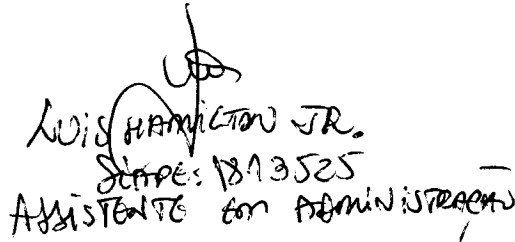 LUIS HAMILTON JR.
SIAPE: 1813525
ASSISTENTE EM ADMINISTRAÇÃO